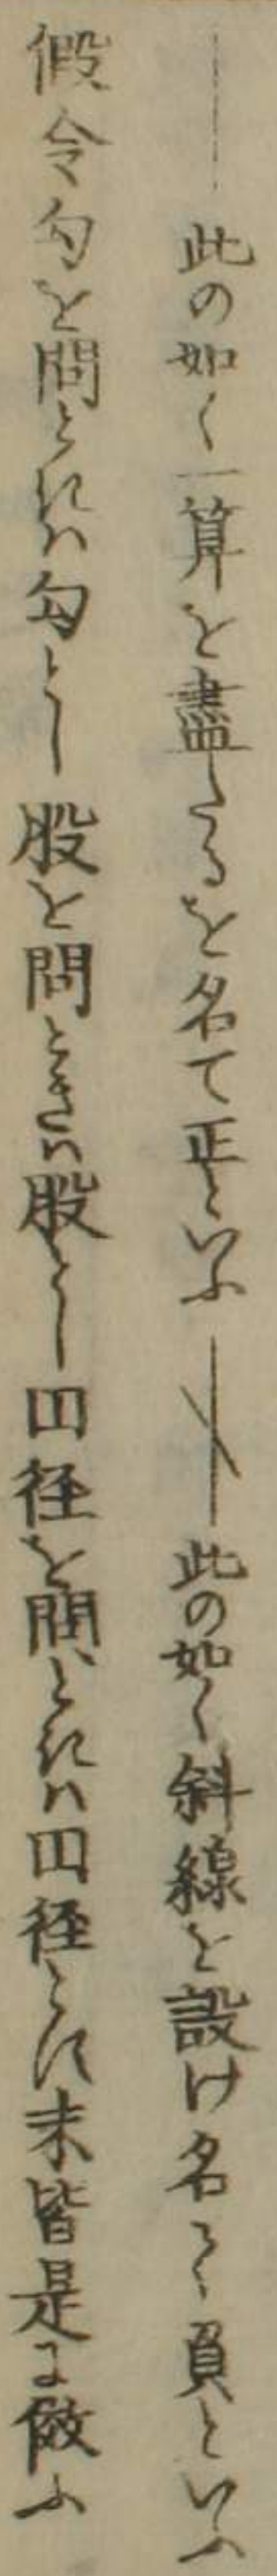 ｜此の如く一算を盡たるを名て正といふ〵此の如く斜線を設け名て負といふ
假令勾を問ときは勾とし股を問ときは股とし円径を問ときは円径とす末皆是に倣ふ